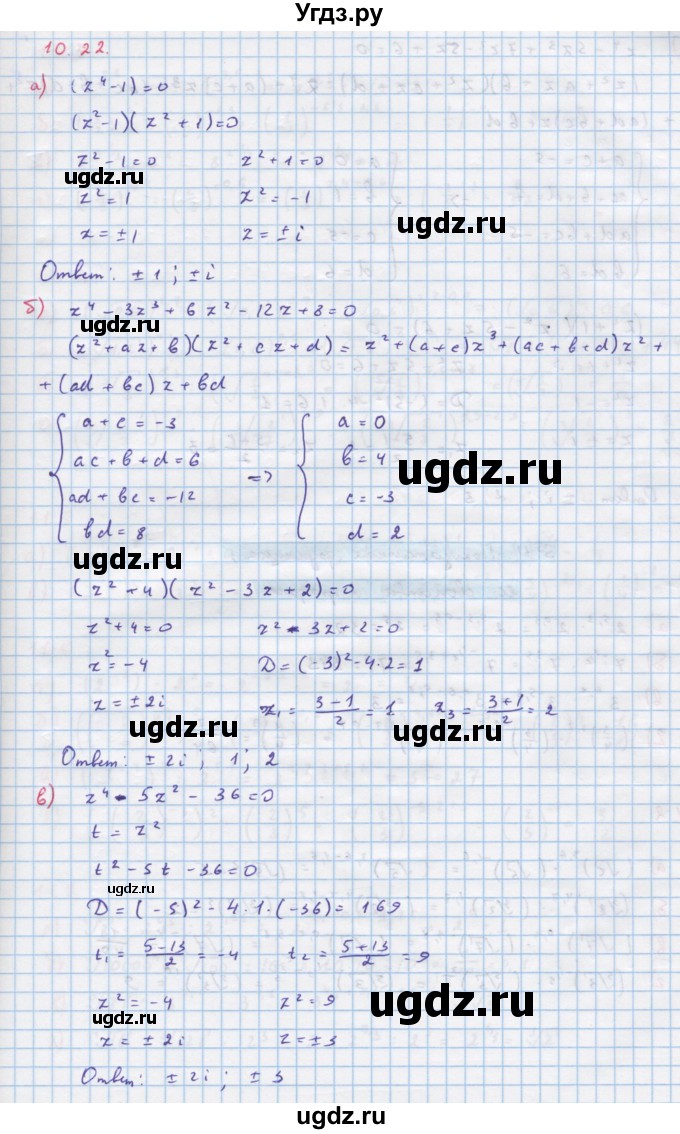 Угдз.ру
10.22.
а) (z⁴-1)=0
(z²-1)(z²+1)=0
z²-1=0 z²+1=0
ugdz.ru
z²=1 z²=-1
ugdz.ru
z=±1 z=±i
Ответ: ±1; ±i
б) z⁴-3z³+6z²-12z+8=0
ugdz.ru
(z²+az+b)(z²+cz+d)=z²+(a+c)z³+(ac+b+d)z²+
+(ad+bc)z+bd
a+c=-3 a=0
ac+b+d=6 => b=4
ugdz.ru
ad+bc=-12 c=-3
bd=8 d=2
ugdz.ru
(z²+4)(z²-3z+2)=0
z²+4=0 z²-3z+2=0
ugdz.ru
z²=-4 D=(-3)²-4·2=1
z=±2i z₁=(3-1)/2=1 z₃=(3+1)/2=2
ugdz.ru
ugdz.ru
Ответ: ±2i; 1; 2
в) z⁴-5z²-36=0
t=z²
t²-5t-36=0
ugdz.ru
D=(-5)²-4·1·(-36)=169
ugdz.ru
t₁=(5-13)/2=-4 t₂=(5+13)/2=9
z²=-4 z²=9
ugdz.ru
ugdz.ru
z=±2i z=±3
Ответ: ±2i; ±3
ugdz.ru